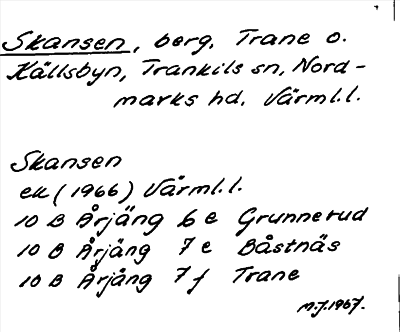 Skansen, berg, Trane o.
Källsbyn, Trankils sn, Nord-
marks hd, Värml.l.
Skansen
ek (1966) Värml.l.
10 B Årjäng 6 e Grunnerud
10 B Årjäng 7 e Båstnäs
10 B Årjång 7 f Trane
M.J.1967.